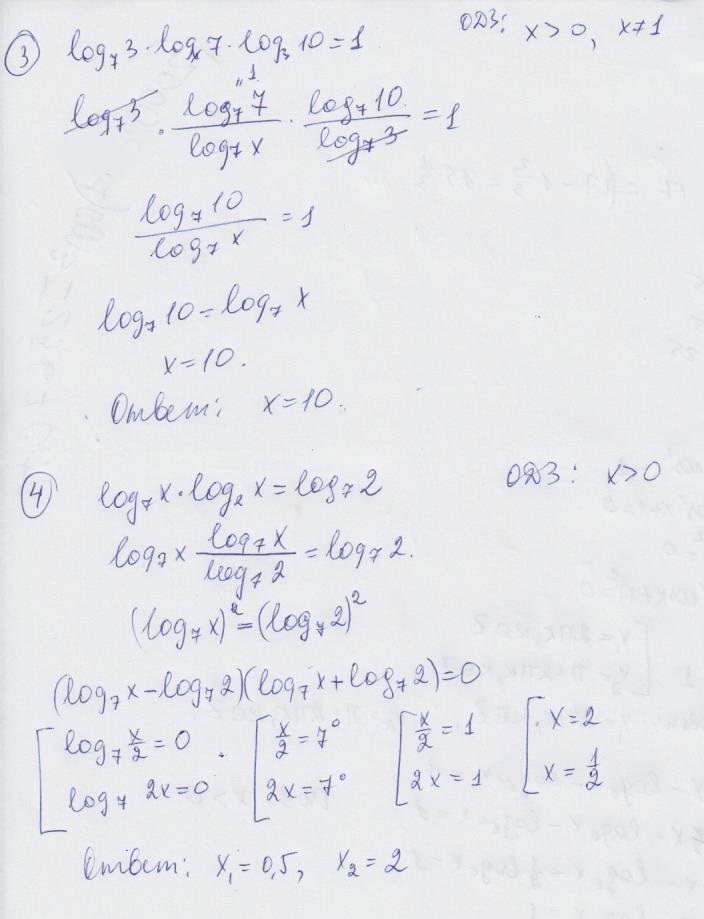 ③ log₇3·logₓ7·log₃10=1 ОДЗ: x>0, x≠1
log₇3 · log₇7/log₇x · log₇10/log₇3 = 1
"1
log₇10/log₇x = 1
log₇10=log₇x
x=10.
Ответ: x=10.
④ log₇x·log₂x=log₇2 ОДЗ: x>0
log₇x log₇x/log₇2 = log₇2.
(log₇x)²=(log₇2)²
(log₇x-log₇2)(log₇x+log₇2)=0
[log₇ x/2=0 [x/2=7⁰ [x/2=1 [x=2
log₇ 2x=0 2x=7⁰ 2x=1 x=1/2
Ответ: x₁=0,5, x₂=2